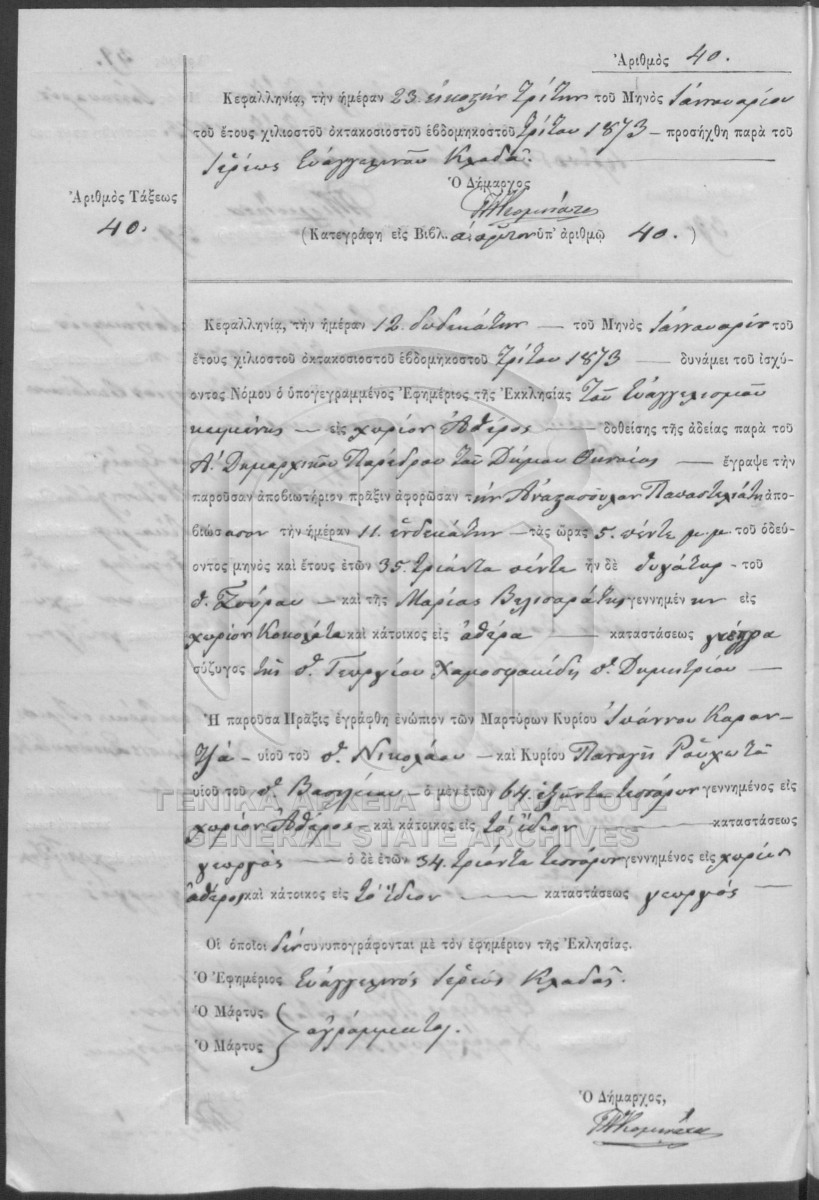 Ἀριθμὸς 40.
Κεφαλληνίᾳ, τὴν ἡμέραν 23. εἰκοστὴν τρίτην τοῦ Μηνὸς Ἰαννουαρίου
τοῦ ἔτους χιλιοστοῦ ὀκτακοσιοστοῦ ἑβδομηκοστοῦ τρίτου 1873 — προσήχθη παρὰ τοῦ
Ἱερέως Εὐαγγελινοῦ Κλαδᾶ.
Ὁ Δήμαρχος
Ἀριθμὸς Τάξεως
40.
(Κατεγράφη εἰς Βιβλ. ὑπ' ἀριθμῷ 40.)
Κεφαλληνίᾳ, τὴν ἡμέραν 12. δωδεκάτην — τοῦ Μηνὸς Ἰαννουαρίου τοῦ
ἔτους χιλιοστοῦ ὀκτακοσιοστοῦ ἑβδομηκοστοῦ τρίτου 1873 — δυνάμει τοῦ ἰσχύ-
οντος Νόμου ὁ ὑπογεγραμμένος Ἐφημέριος τῆς Ἐκκλησίας τοῦ Εὐαγγελισμοῦ
κειμένης — εἰς χωρίον Ἀθέρος — δοθείσης τῆς ἀδείας παρὰ τοῦ
Α. Δημαρχικοῦ Παρέδρου τοῦ Δήμου — ἔγραψε τὴν
παροῦσαν ἀποβιωτήριον πρᾶξιν ἀφορῶσαν τὴν Ἀναστασούλαν ἀπο-
βιώσασαν τὴν ἡμέραν 11. ἑνδεκάτην — τὰς ὥρας 5. πέντε μ.μ. τοῦ ὁδεύ-
οντος μηνὸς καὶ ἔτους ἐτῶν 35. τριάντα πέντε ἦν δὲ θυγάτηρ - τοῦ
π. — καὶ τῆς Μαρίας γεννημένην εἰς
χωρίον καὶ κάτοικος εἰς Ἀθέρα — καταστάσεως
σύζυγος τῆς π. Γεωργίου π. Δημητρίου —
Ἡ παροῦσα Πρᾶξις ἐγράφθη ἐνώπιον τῶν Μαρτύρων Κυρίου Ἰωάννου Καραν-
τζᾶ - υἱοῦ τοῦ π. Νικολάου — καὶ Κυρίου Παναγῆ
υἱοῦ τοῦ π. Βασιλείου - ὁ μὲν ἐτῶν 64. ἑξῆντα τεσσάρων γεννημένος εἰς
χωρίον Ἀθέρος - καὶ κάτοικος εἰς τὸ ἴδιον — καταστάσεως
γεωργός — ὁ δὲ ἐτῶν 34. τριάντα τεσσάρων γεννημένος εἰς χωρίον
Ἀθέρος καὶ κάτοικος εἰς τὸ ἴδιον — καταστάσεως γεωργός —
Οἱ ὁποῖοι δὲν συνυπογράφονται μὲ τὸν ἐφημέριον τῆς Ἐκλησίας.
Ὁ Ἐφημέριος Εὐαγγελινός Ἱερεύς Κλαδᾶς.
Ὁ Μάρτυς
ἀγράμματοι.
Ὁ Μάρτυς
Ὁ Δήμαρχος,
ΓΕΝΙΚΑ ΑΡΧΕΙΑ ΤΟΥ ΚΡΑΤΟΥΣ
GENERAL STATE ARCHIVES